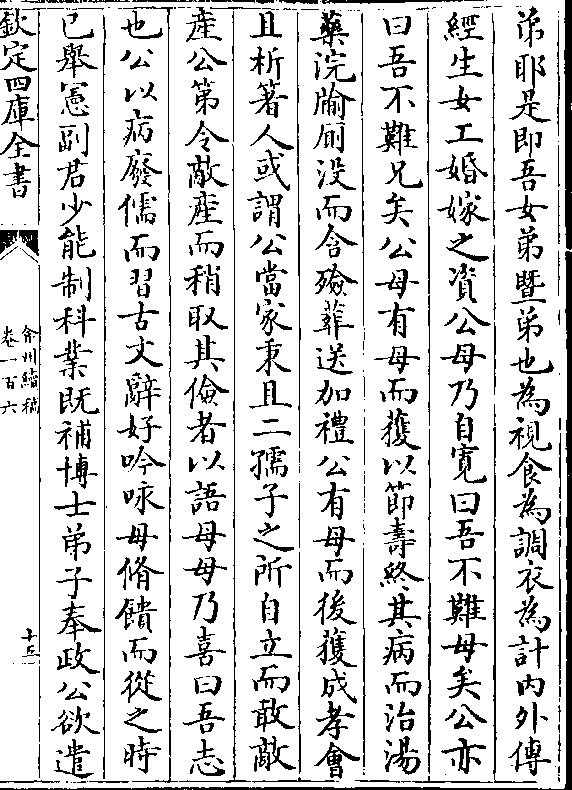 弟耶是即吾女弟暨弟也為視食為調衣為計內外傅
經生女工婚嫁之資公母乃自寛曰吾不難母矣公亦
曰吾不難兄矣公母有母而獲以節壽終其病而治湯
藥浣牏厠没而含殮葬送加禮公有母而後獲成孝會
且析著人或謂公當家秉且二孺子之所自立而敢敵
産公第令敵産而稍取其儉者以語母母乃喜曰吾志
也公以病廢儒而習古文辭好吟咏母脩饋而從之時
已舉憲副君少能制科業既補博士弟子奉政公欲遣
欽定四庫全書
弇州續稿
卷一百六
十五